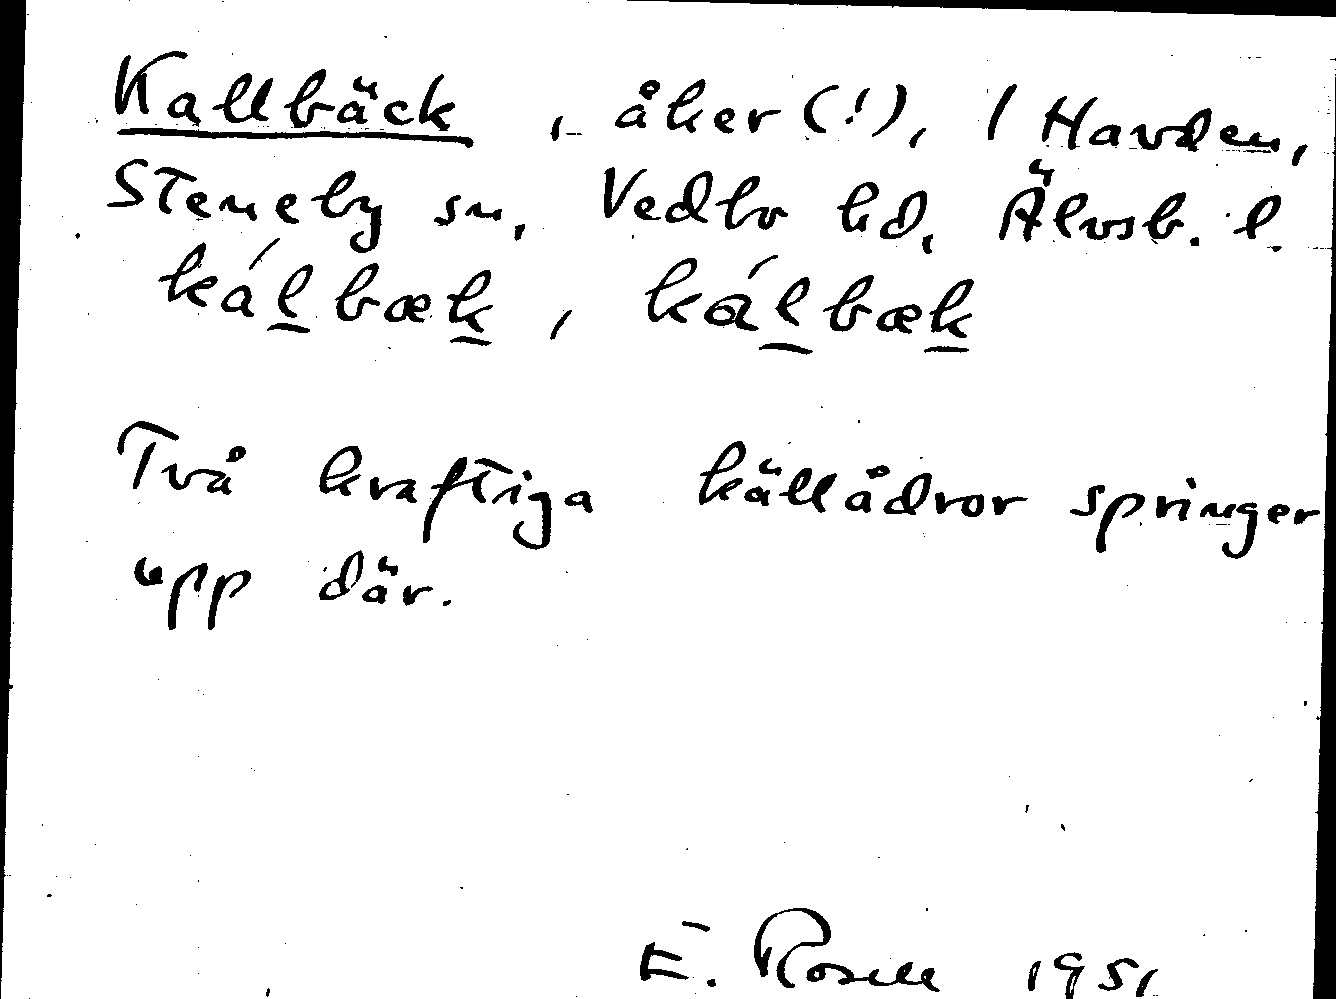 Kallbäck, åker (!), / Havden,
Steneby sn, Vedbo hd, Älvsb. l.
kálbæk, kálbæk
Två kraftiga källådror springer
upp där.
E. Rosell 1951